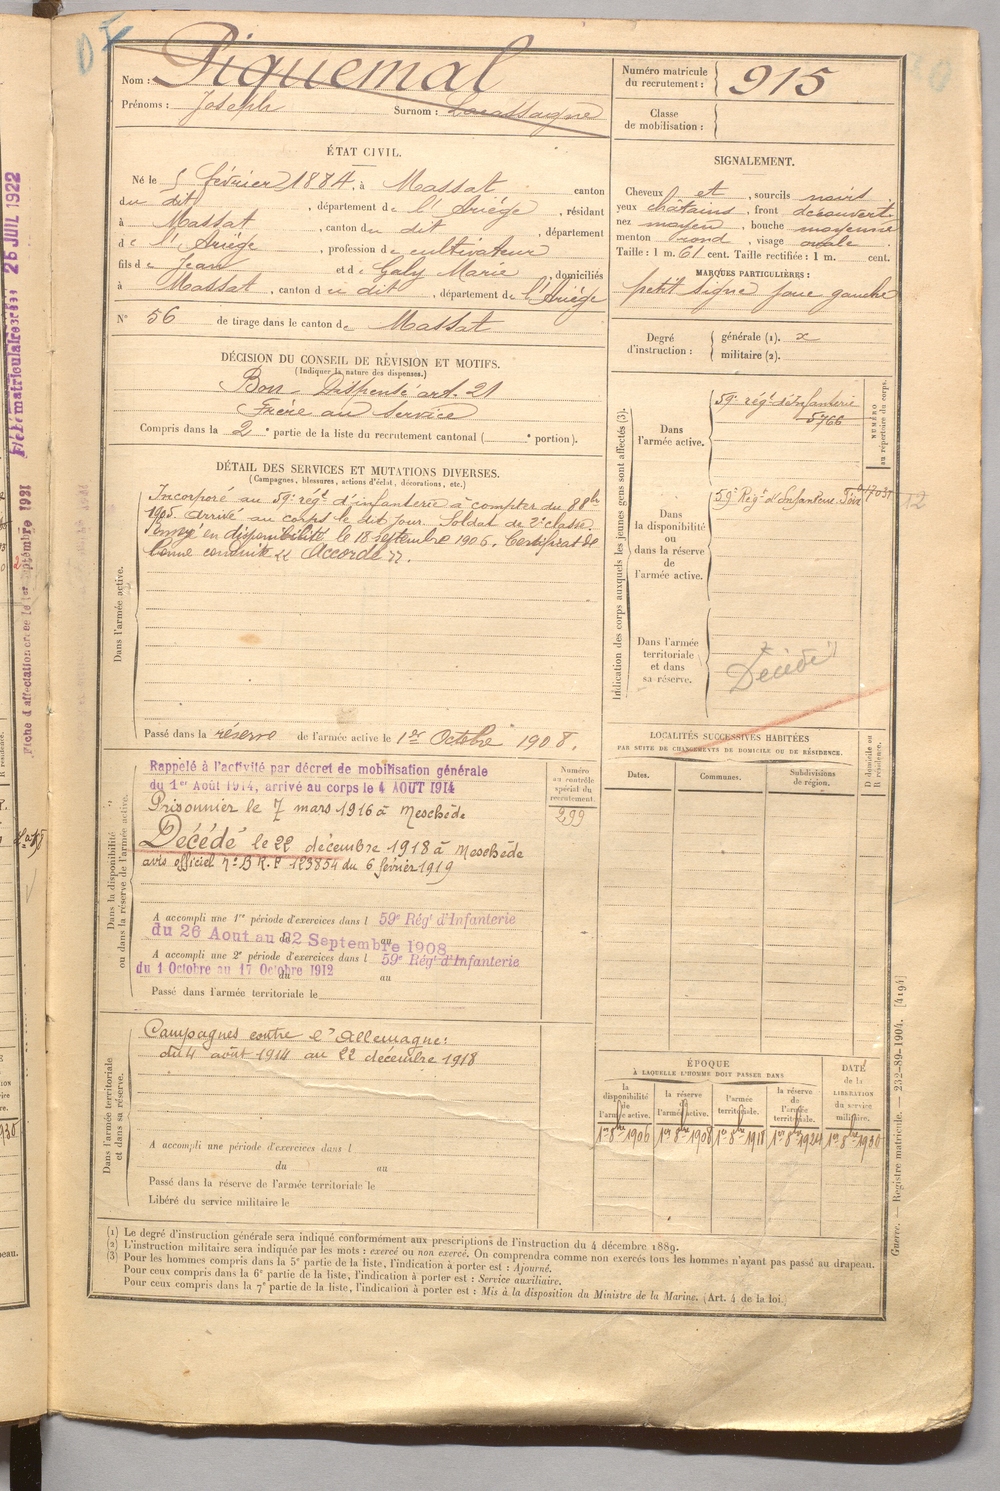 Nom : Piquemal
Prénoms : Joseph Surnom : Lacassaigne
Numéro matricule du recrutement : 915
Classe de mobilisation :
ÉTAT CIVIL.
Né le 5 février 1884, à Massat canton
du dit, département de l'Ariége, résidant
à Massat, canton du dit, département
de l'Ariége, profession de cultivateur
fils de Jean et de Galy Marie, domiciliés
à Massat, canton du dit, département de l'Ariége
N° 56 de tirage dans le canton de Massat
SIGNALEMENT.
Cheveux et, sourcils noirs
yeux châtains, front découvert
nez moyen, bouche moyenne
menton rond, visage ovale
Taille : 1 m. 61 cent. Taille rectifiée : 1 m. cent.
MARQUES PARTICULIÈRES :
petit signe joue gauche
Degré d'instruction : générale (1). 2
militaire (2).
DÉCISION DU CONSEIL DE RÉVISION ET MOTIFS.
(Indiquer la nature des dispenses.)
Bon - Dispensé art. 21
Frère au service
Compris dans la 2e partie de la liste du recrutement cantonal ( e portion).
DÉTAIL DES SERVICES ET MUTATIONS DIVERSES.
(Campagnes, blessures, actions d'éclat, décorations, etc.)
Dans l'armée active.
Incorporé au 59e régt d'infanterie à compter du 8 8bre
1905. Arrivé au corps le dit jour. Soldat de 2e classe.
Envoyé en disponibilité le 18 septembre 1906. Certificat de
bonne conduite "Accordé".
Passé dans la réserve de l'armée active le 1er Octobre 1908.
Indication des corps auxquels les jeunes gens sont affectés (3).
Dans l'armée active.
59e régt d'Infanterie
5766
NUMÉRO au répertoire du corps.
Dans la disponibilité ou dans la réserve de l'armée active.
59e Régt d'Infanterie Foix
12
Dans l'armée territoriale et dans sa réserve.
Décédé
LOCALITÉS SUCCESSIVES HABITÉES
PAR SUITE DE CHANGEMENTS DE DOMICILE OU DE RÉSIDENCE.
Dates. Communes. Subdivisions de région.
D domicile ou R résidence.
Dans la disponibilité ou dans la réserve de l'armée active.
Rappelé à l'activité par décret de mobilisation générale
du 1er Août 1914, arrivé au corps le 4 AOUT 1914
Prisonnier le 7 mars 1916 à Meschède
Décédé le 22 décembre 1918 à Meschède
avis officiel n° B R.F 123854 du 6 février 1919
Numéro au contrôle spécial du recrutement.
299
A accompli une 1re période d'exercices dans l 59e Régt d'Infanterie
du 26 Aout au 22 Septembre 1908
A accompli une 2e période d'exercices dans l 59e Régt d'Infanterie
du 1 Octobre au 17 Octobre 1912
Passé dans l'armée territoriale le
Dans l'armée territoriale et dans sa réserve.
Campagnes contre l'Allemagne:
du 4 août 1914 au 22 décembre 1918
A accompli une période d'exercices dans l
du au
Passé dans la réserve de l'armée territoriale le
Libéré du service militaire le
ÉPOQUE
À LAQUELLE L'HOMME DOIT PASSER DANS
la disponibilité de l'armée active. 1er 8bre 1906
la réserve de l'armée active. 1er 8bre 1908
l'armée territoriale. 1er 8bre 1918
la réserve de l'armée territoriale. 1er 8bre 1924
DATE de la LIBÉRATION du service militaire. 1er 8bre 1930
(1) Le degré d'instruction générale sera indiqué conformément aux prescriptions de l'instruction du 4 décembre 1889.
(2) L'instruction militaire sera indiquée par les mots : exercé ou non exercé. On comprendra comme non exercés tous les hommes n'ayant pas passé au drapeau.
(3) Pour les hommes compris dans la 5e partie de la liste, l'indication à porter est : Ajourné.
Pour ceux compris dans la 6e partie de la liste, l'indication à porter est : Service auxiliaire.
Pour ceux compris dans la 7e partie de la liste, l'indication à porter est : Mis à la disposition du Ministre de la Marine. (Art. 4 de la loi.)
Guerre. — Registre matricule. — 232-89-1904. [4194]
Fiche matriculaire créée 26 JUIL 1922
Fiche d'affectation créée le 1er septembre 1921